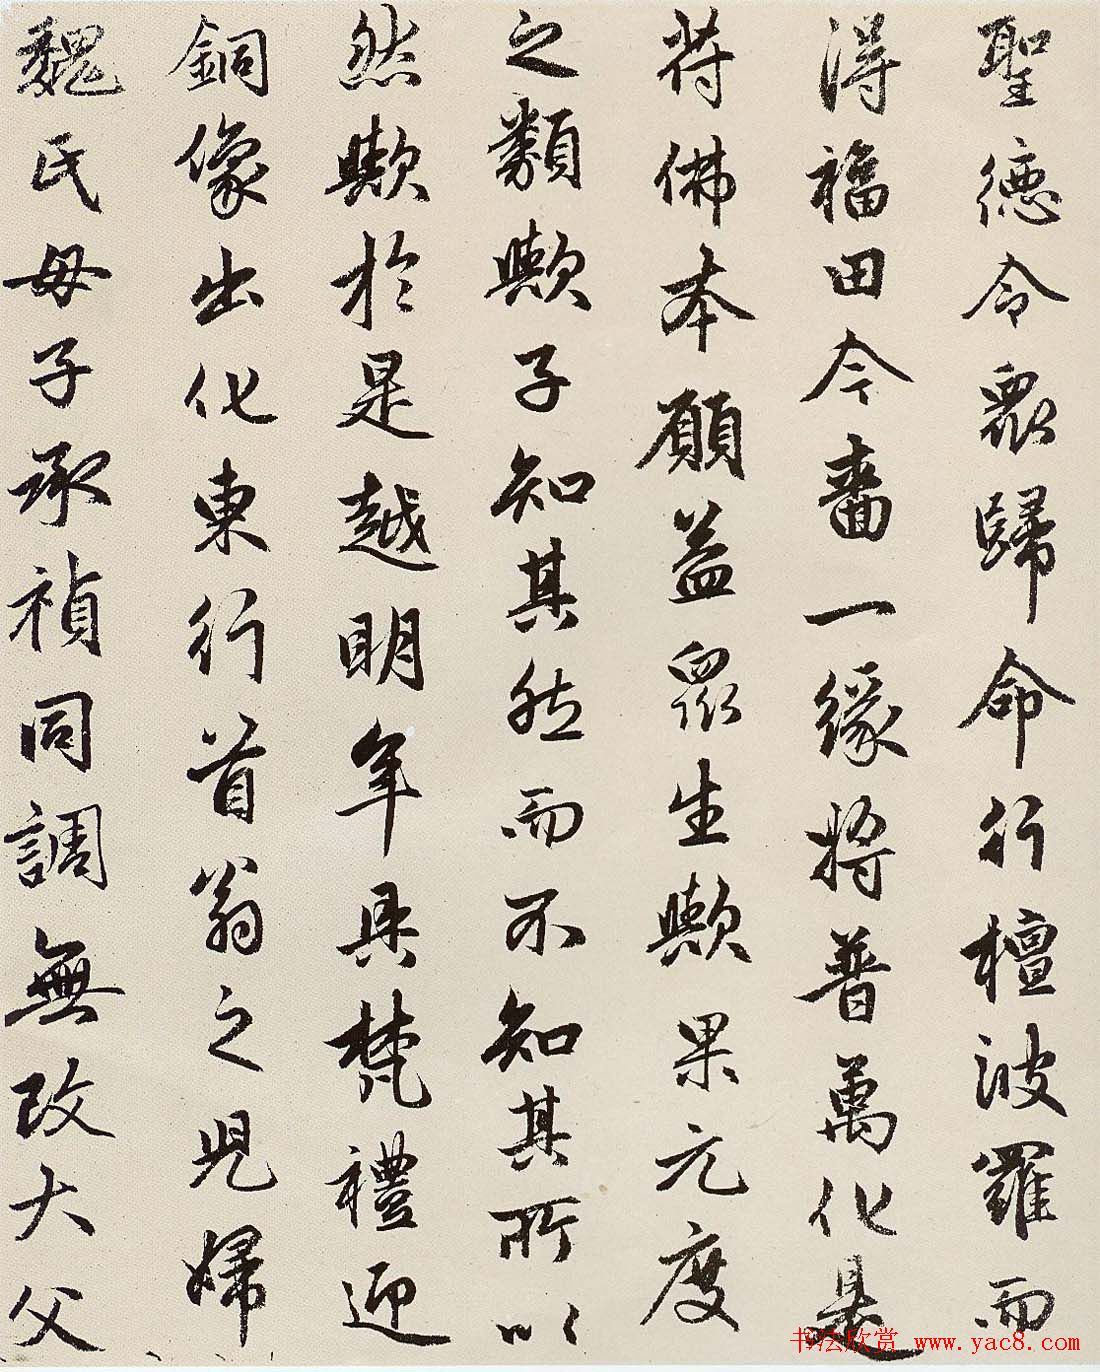 聖德令眾歸命行檀波羅而
得福田今番一緣將普萬化是
符佛本願益眾生歟果元度
之類歟子知其然而不知其所以
然歟於是越明年具梵禮迎
銅像出化東行首翁之兒婦
魏氏母子承禎同調無改大父
书法欣赏 www.yac8.com